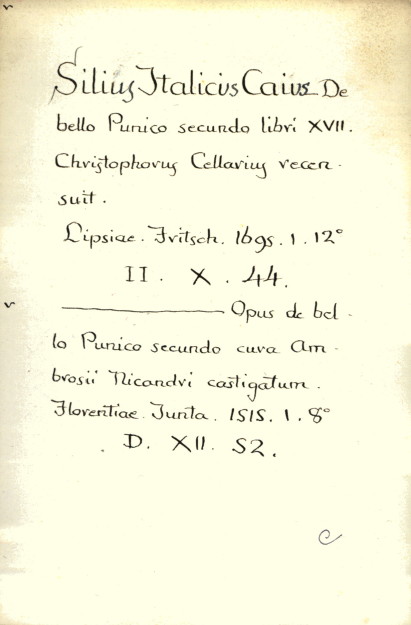 Silius Italicus Caius De
bello Punico secundo libri XVII.
Christophorus Cellarius recen-
suit.
Lipsiae. Fritsch. 1695. 1. 12°
II. X. 44.
Opus de bel-
lo Punico secundo cura Am-
brosii Nicandri castigatum.
Florentiae. Junta. 1515. 1. 8°
D. XII. 52.